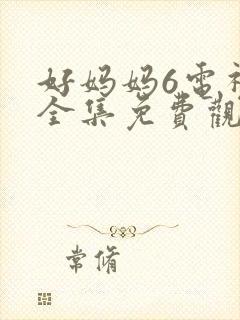 好妈妈6电视
全集免費觀
常脩